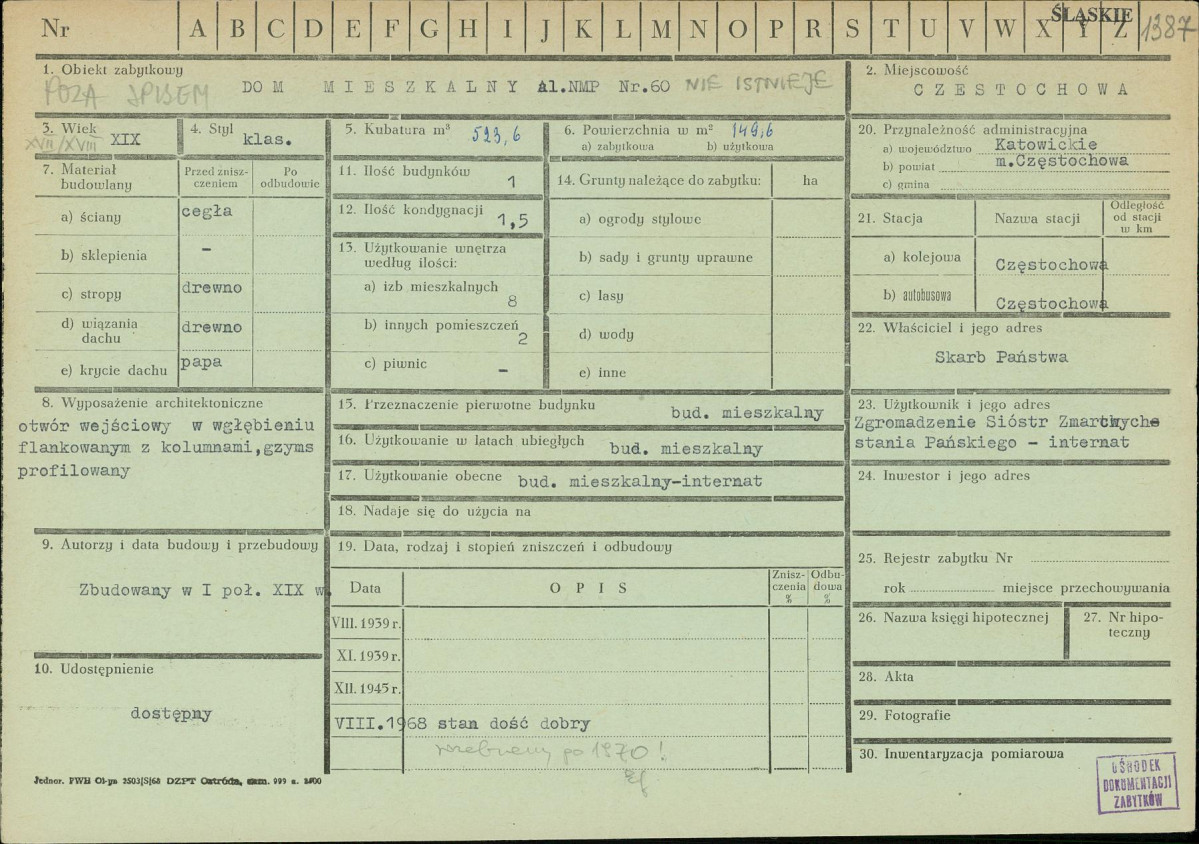 Nr A B C D E F G H I J K L M N O P R S T U V W X Y Z
ŚLĄSKIE
1387
1. Obiekt zabytkowy
POZA SPISEM
DOM MIESZKALNY Al.NMP Nr.60 NIE ISTNIEJE
2. Miejscowość
CZESTOCHOWA
3. Wiek
XVII/XVIII
XIX
4. Styl
klas.
5. Kubatura m³
523,6
6. Powierzchnia w m²
149,6
a) zabytkowa b) użytkowa
7. Materiał budowlany
Przed zniszczeniem
Po odbudowie
a) ściany
cegła
b) sklepienia
-
c) stropy
drewno
d) wiązania dachu
drewno
e) krycie dachu
papa
8. Wyposażenie architektoniczne
otwór wejściowy w wgłębieniu
flankowanym z kolumnami,gzyms
profilowany
9. Autorzy i data budowy i przebudowy
Zbudowany w I poł. XIX w.
10. Udostępnienie
dostępny
11. Ilość budynków
1
12. Ilość kondygnacji
1,5
13. Użytkowanie wnętrza
według ilości:
a) izb mieszkalnych
8
b) innych pomieszczeń
2
c) piwnic
-
14. Grunty należące do zabytku: ha
a) ogrody stylowe
b) sady i grunty uprawne
c) lasy
d) wody
e) inne
15. Przeznaczenie pierwotne budynku
bud. mieszkalny
16. Użytkowanie w latach ubiegłych
bud. mieszkalny
17. Użytkowanie obecne
bud. mieszkalny-internat
18. Nadaje się do użycia na
19. Data, rodzaj i stopień zniszczeń i odbudowy
Data OPIS
Zniszczenia %
Odbudowa %
VIII. 1939 r.
XI. 1939 r.
XII. 1945 r.
VIII.1968 stan dość dobry
rozebrany po 1970!
20. Przynależność administracyjna
a) województwo Katowickie
b) powiat m.Częstochowa
c) gmina
21. Stacja Nazwa stacji
Odległość
od stacji
w km
a) kolejowa
Częstochowa
b) autobusowa
Częstochowa
22. Właściciel i jego adres
Skarb Państwa
23. Użytkownik i jego adres
Zgromadzenie Sióstr Zmartwychstania Pańskiego - internat
24. Inwestor i jego adres
25. Rejestr zabytku Nr
rok miejsce przechowywania
26. Nazwa księgi hipotecznej
27. Nr hipoteczny
28. Akta
29. Fotografie
30. Inwentaryzacja pomiarowa
OŚRODEK
DOKUMENTACJI
ZABYTKÓW